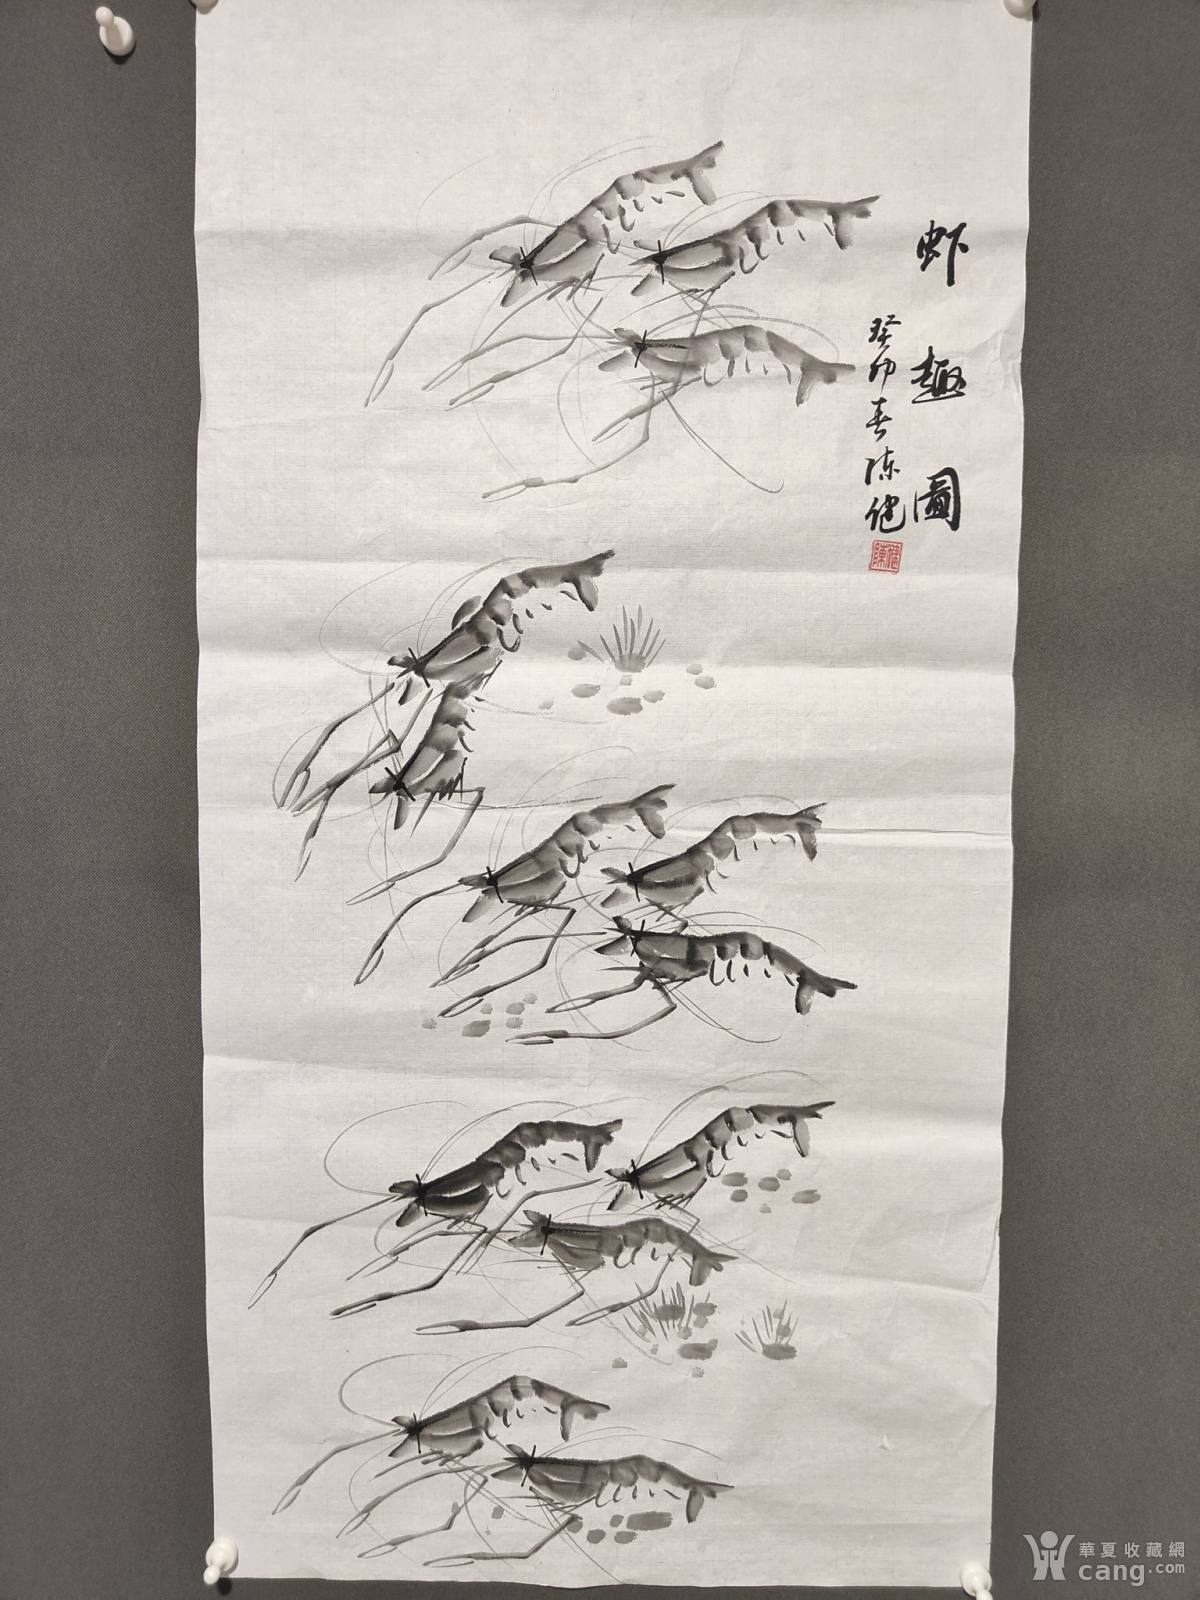 虾趣圖
癸卯春陈健
陳健
華夏收藏網
cang.com